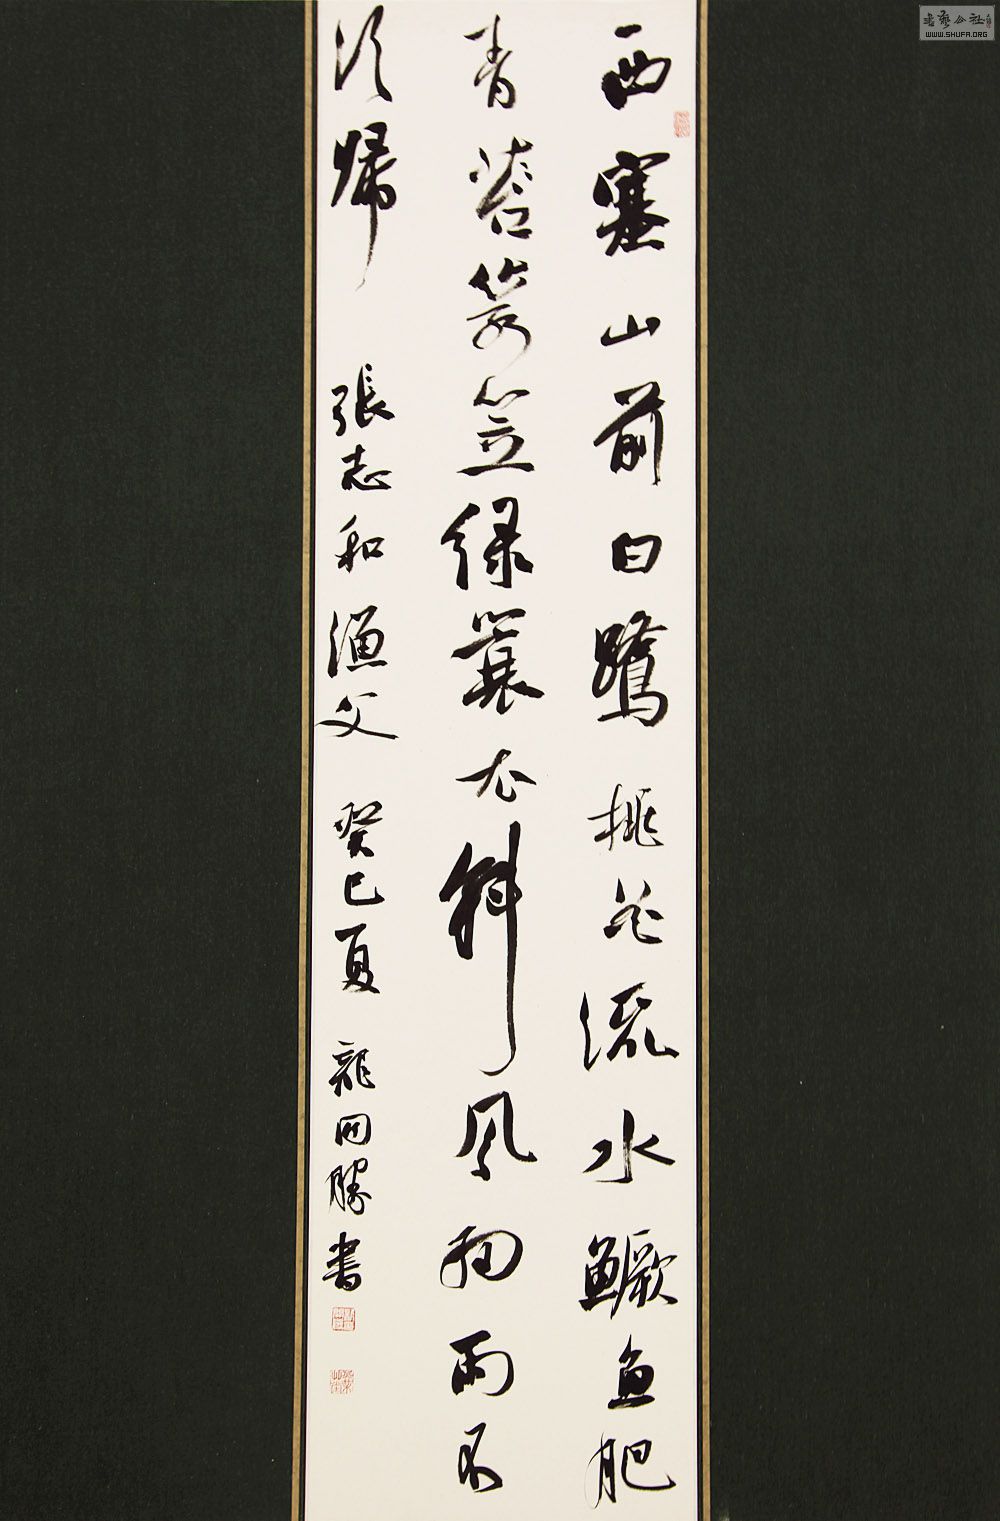 西塞山前白鷺桃花流水鱖魚肥
青箬笠綠蓑衣斜風細雨不
須歸 張志和漁父 癸巳夏 龍開勝書
書藝公社
WWW.SHUFA.ORG